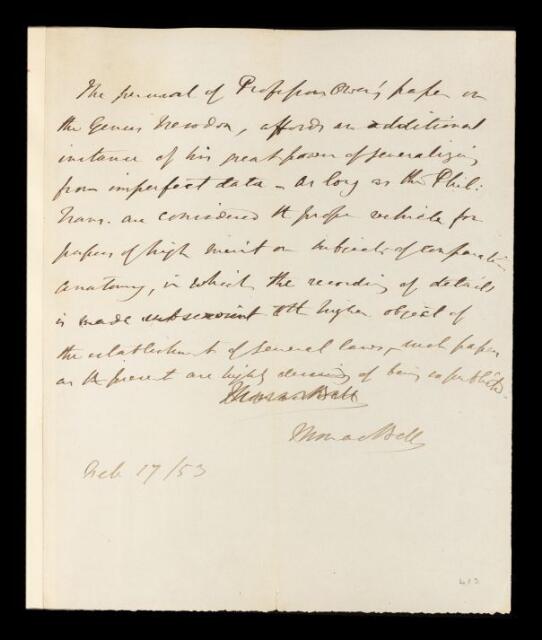 The perusal of Professor Owen's paper on
the Genus Nesodon, affords an additional
instance of his great power of generalizing
from imperfect data - As long as the Phil:
Trans. are considered the proper vehicle for
papers of high merit on subjects of comparative
anatomy, in which the recording of details
is made subservient to the higher object of
the establishment of general laws, such papers
as the present are highly deserving of being so published.
Thomas Bell
Thomas Bell
Feb 17/53